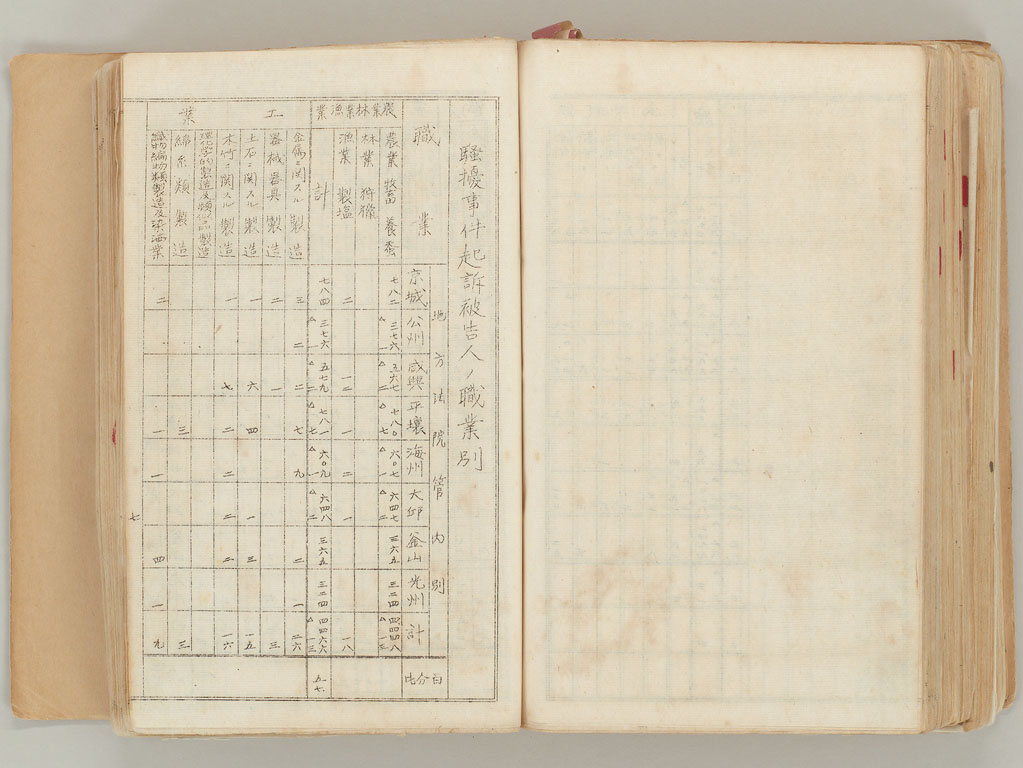 騒擾事件起訴被告人ノ職業別
職業
地方法院管内別
京城
公州
咸興
平壌
海州
大邱
釜山
光州
計
百分比
農業林業漁業
農業 牧畜 養蚕
七八二
三七六 △一
五六七 △二
七八〇 △七
六〇七 △一
六四七 △二
三六五
三二四
四四四八 △一三
林業 狩猟
漁業 製塩
二
一二
一
二
一
一八
計
七八四
三七六 △一
五七九 △二
七八一 △七
六〇九 △一
六四八 △二
三六五
三二四
四四六六 △一三
五七
工業
金属ニ関スル製造
三
二
二
七
九
二
一
二六
器械器具製造
二
一
三
土石ニ関スル製造
一
六
四
一
三
一五
木竹ニ関スル製造
一
七
二
二
二
二
一六
理化学的製造及類似品製造
綿糸類製造
三
三
織物編物類製造及染洒業
二
一
一
四
一
九
七